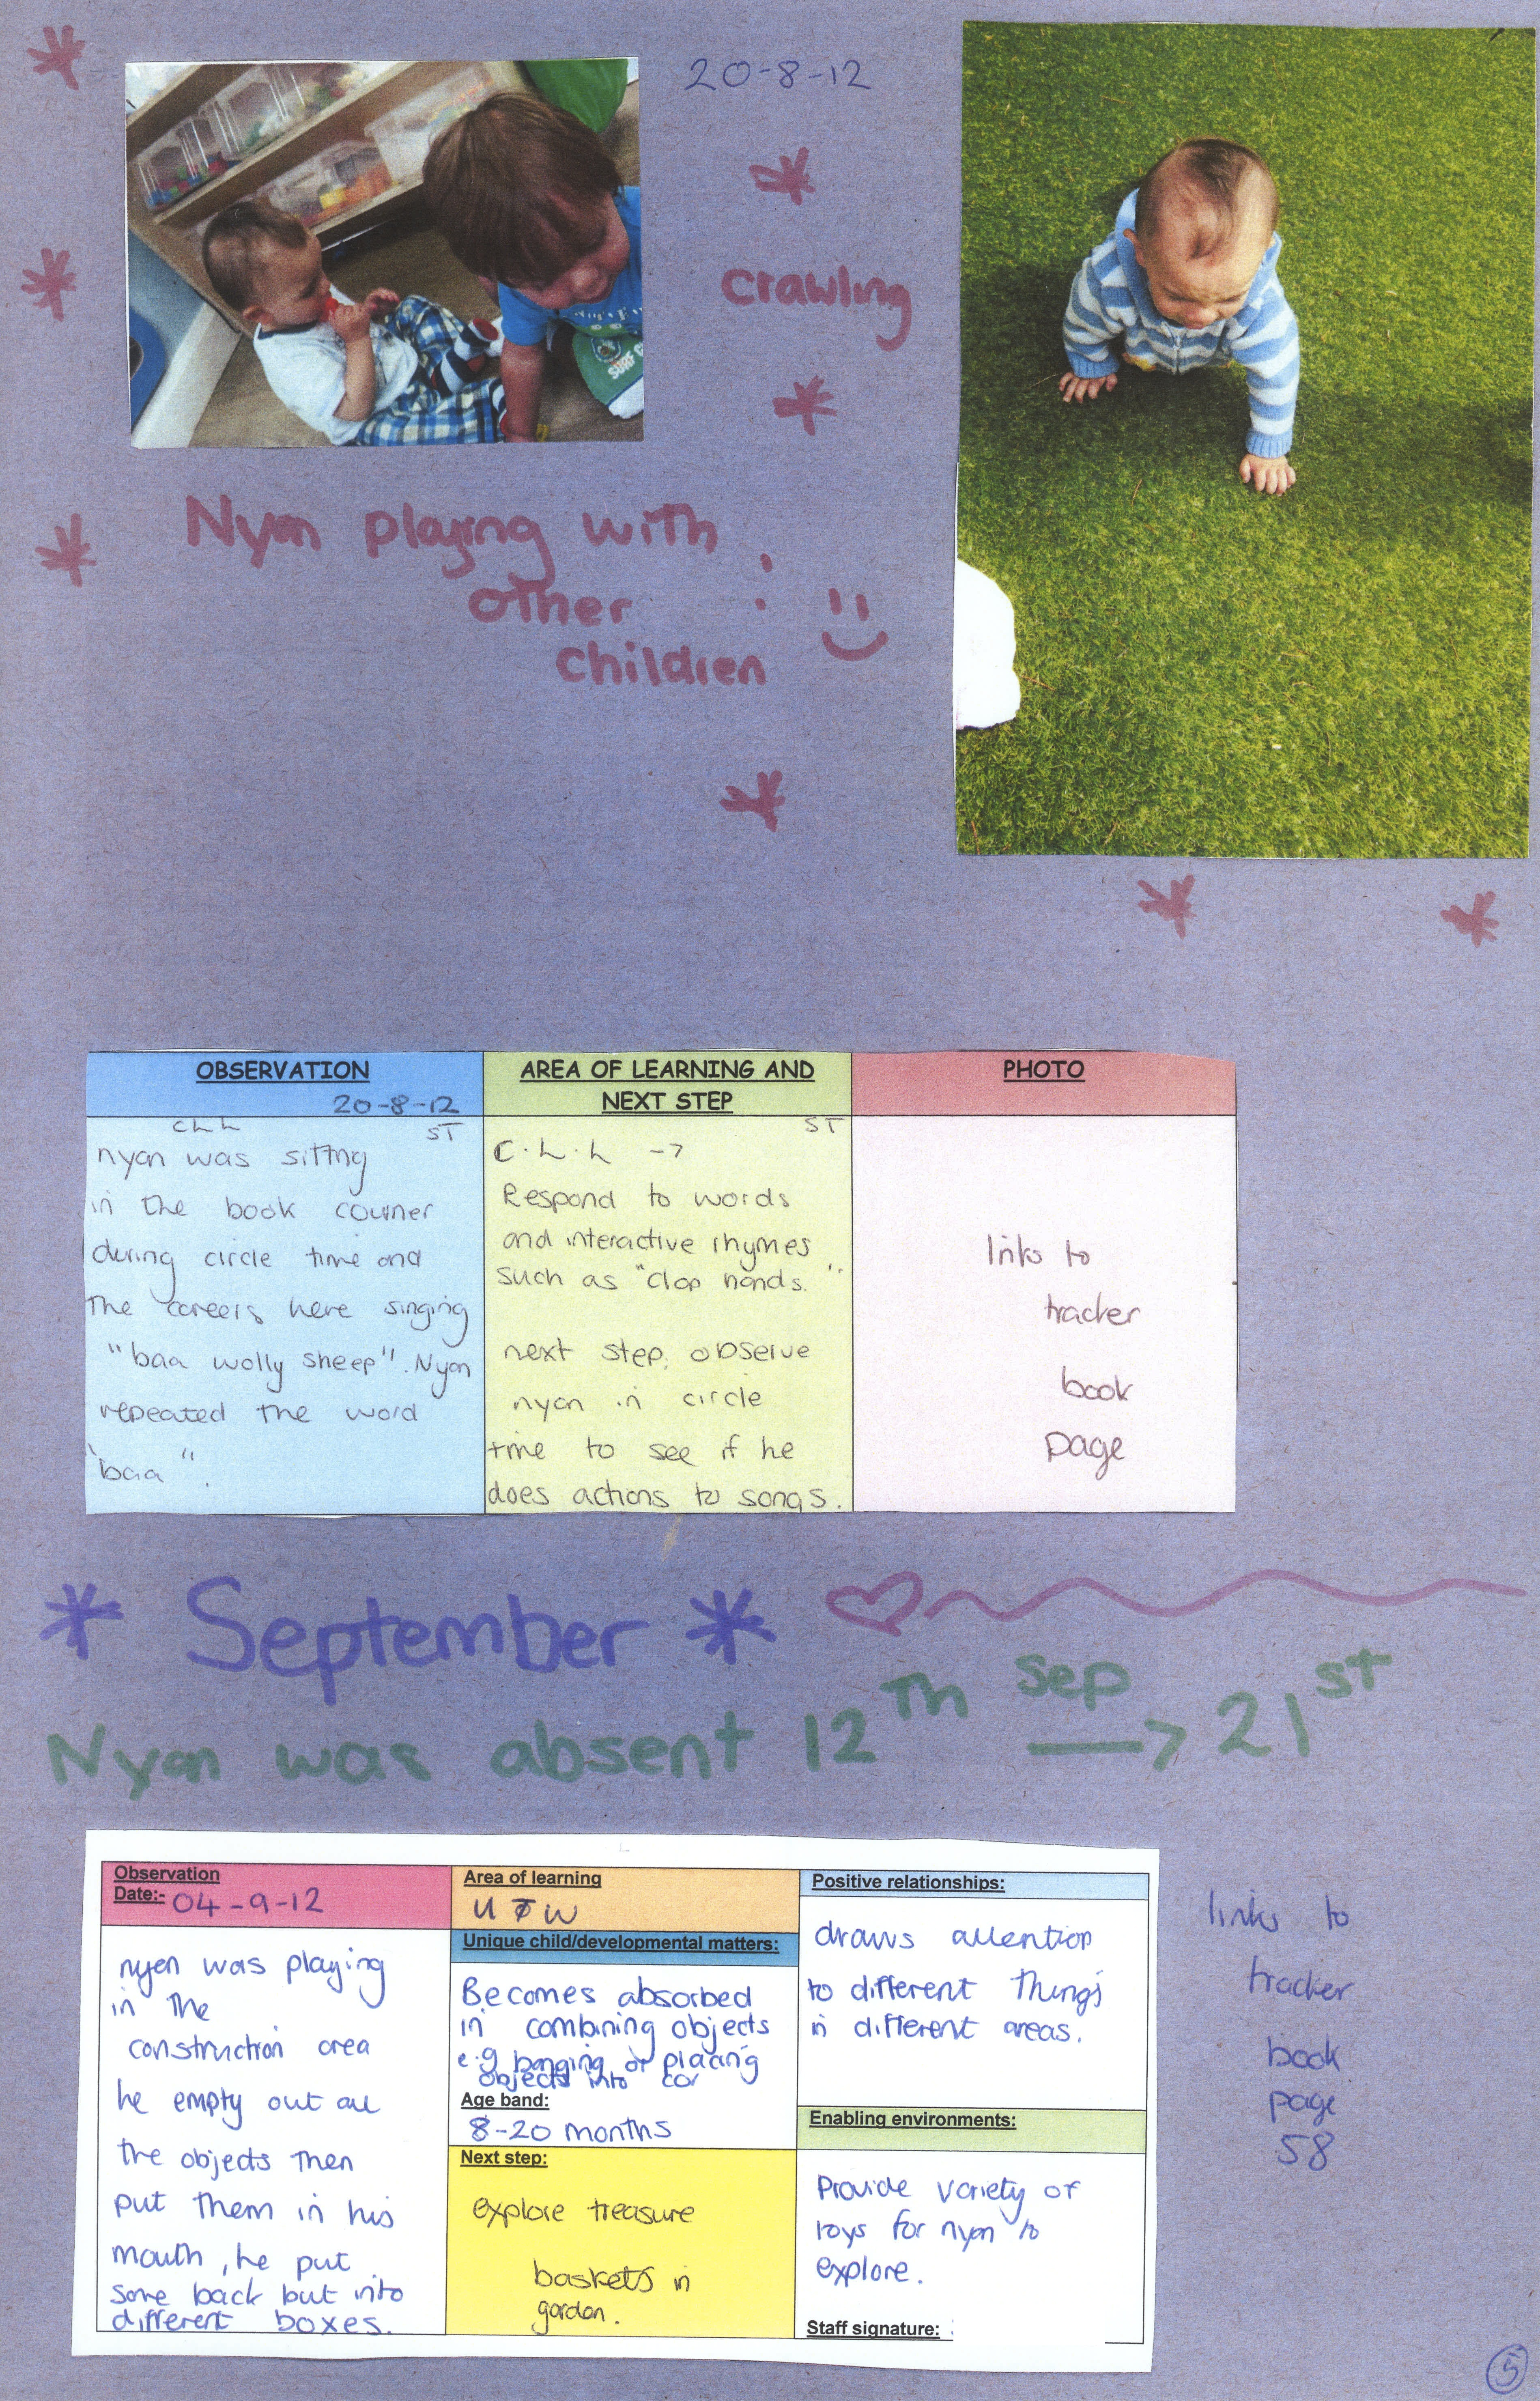 20-8-12
crawling
SURF
Nyan playing with
other
children
OBSERVATION
20-8-12
CLL
ST
nyan was sitting
in the book courner
during circle time and
the careers here singing
"baa wolly sheep". Nyan
repeated the word
"baa".
AREA OF LEARNING AND
NEXT STEP
ST
C.L.L ->
Respond to words
and interactive rhymes
such as "clap hands."
next step: observe
nyan in circle
time to see if he
does actions to songs.
PHOTO
links to
tracker
book
page
* September *
Nyan was absent 12th Sep -> 21st
Observation
Date:- 04-9-12
nyan was playing
in the
construction area
he empty out all
the objects then
put them in his
mouth, he put
some back but into
different boxes.
Area of learning
U W
Unique child/developmental matters:
Becomes absorbed
in combining objects
e.g banging or placing
objects into
Age band:
8-20 months
Next step:
explore treasure
baskets in
garden.
Positive relationships:
draws attention
to different things
in different areas.
Enabling environments:
Provide variety of
toys for nyan to
explore.
Staff signature:
links to
tracker
book
page
58
5